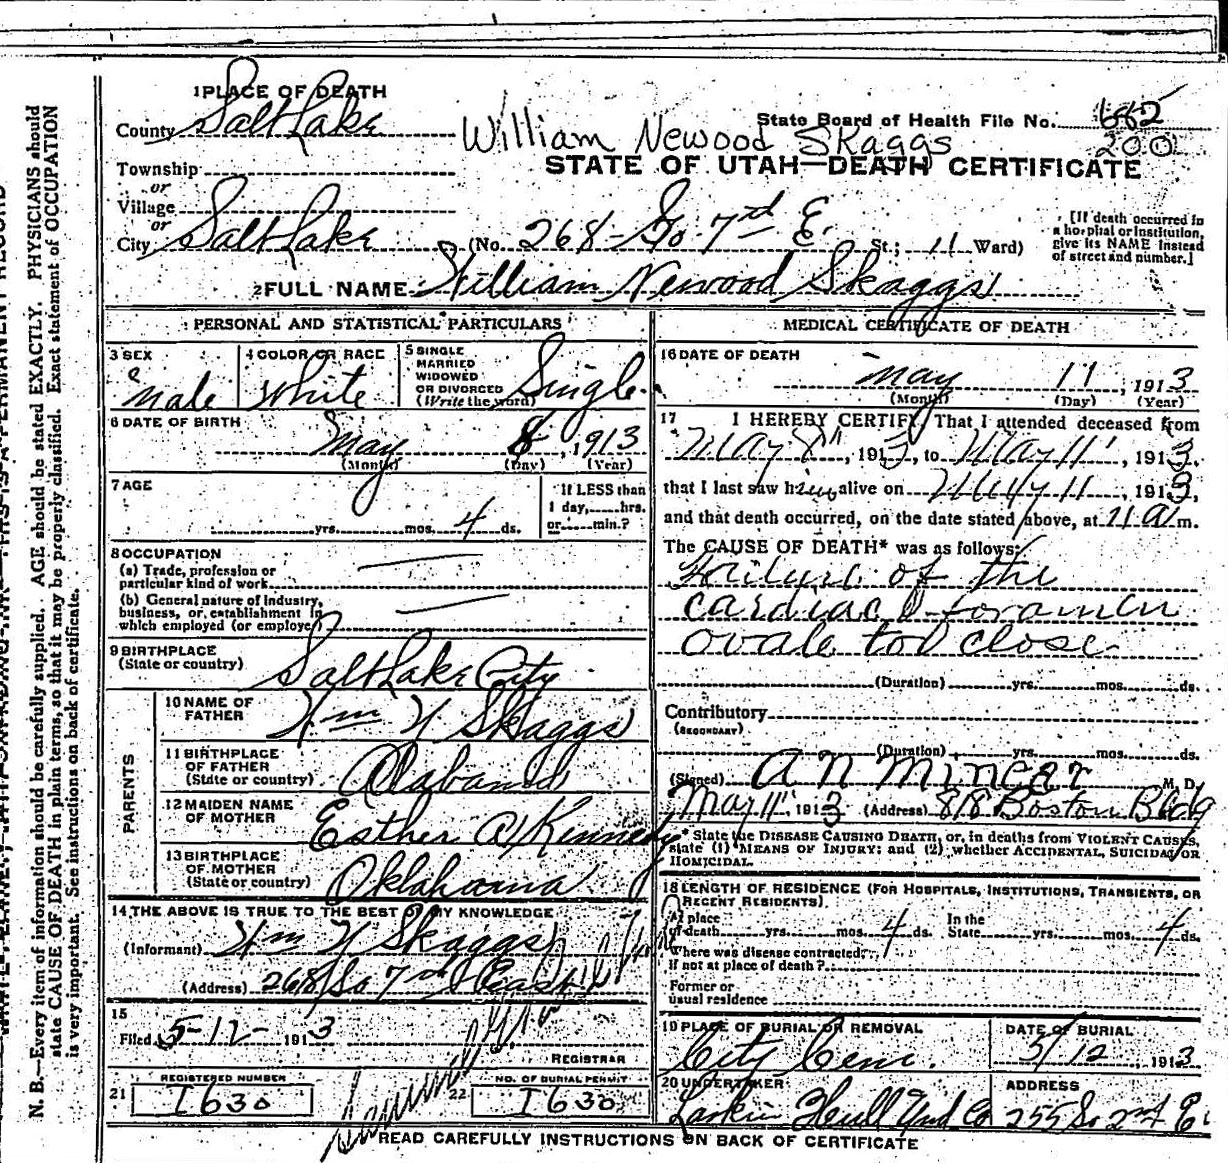 1 PLACE OF DEATH
County Salt Lake
William Newood Skaggs
State Board of Health File No. 682
200
STATE OF UTAH—DEATH CERTIFICATE
Township
or
Village
or
City Salt Lake (No. 268 - So. 7th E. St.; 11 Ward)
[If death occurred in a hospital or institution, give its NAME instead of street and number.]
2 FULL NAME William Newood Skaggs
PERSONAL AND STATISTICAL PARTICULARS
3 SEX
Male
4 COLOR OR RACE
White
5 SINGLE
MARRIED
WIDOWED
OR DIVORCED
(Write the word)
Single
6 DATE OF BIRTH
May 8, 1913
(Month) (Day) (Year)
7 AGE
yrs. mos. 4 ds.
If LESS than
1 day, hrs.
or min.?
8 OCCUPATION
(a) Trade, profession or
particular kind of work
(b) General nature of industry,
business, or establishment in
which employed (or employer)
9 BIRTHPLACE
(State or country)
Salt Lake City
PARENTS
10 NAME OF
FATHER
Wm N Skaggs
11 BIRTHPLACE
OF FATHER
(State or country)
Alabama
12 MAIDEN NAME
OF MOTHER
Esther A Kennedy
13 BIRTHPLACE
OF MOTHER
(State or country)
Oklahoma
14 THE ABOVE IS TRUE TO THE BEST OF MY KNOWLEDGE
(Informant) Wm N Skaggs
(Address) 268 So 7th East
15
Filed 5-12- 1913
REGISTRAR
REGISTERED NUMBER
21 I630
NO. OF BURIAL PERMIT
22 I630
MEDICAL CERTIFICATE OF DEATH
16 DATE OF DEATH
May 11, 1913
(Month) (Day) (Year)
17 I HEREBY CERTIFY, That I attended deceased from
May 8", 1913, to May 11", 1913,
that I last saw him alive on May 11, 1913,
and that death occurred, on the date stated above, at 11 a m.
The CAUSE OF DEATH* was as follows:
Failure of the
cardiac foramen
ovale to close
(Duration) yrs. mos. ds.
Contributory
(SECONDARY)
(Duration) yrs. mos. ds.
(Signed) A N Mincer M. D.
May 11", 1913 (Address) 818 Boston Bldg
* State the DISEASE CAUSING DEATH, or, in deaths from VIOLENT CAUSES,
state (1) MEANS OF INJURY; and (2) whether ACCIDENTAL, SUICIDAL OR
HOMICIDAL.
18 LENGTH OF RESIDENCE (FOR HOSPITALS, INSTITUTIONS, TRANSIENTS, OR
RECENT RESIDENTS).
At place
of death yrs. mos. 4 ds.
In the
State yrs. mos. 4 ds.
Where was disease contracted,
if not at place of death?
Former or
usual residence
19 PLACE OF BURIAL OR REMOVAL
City Cem.
DATE OF BURIAL
5/12, 1913
20 UNDERTAKER
Larkin Hull Und Co
ADDRESS
255 So 2nd E.
READ CAREFULLY INSTRUCTIONS ON BACK OF CERTIFICATE
N. B.—Every item of information should be carefully supplied. AGE should be stated EXACTLY. PHYSICIANS should
state CAUSE OF DEATH in plain terms, so that it may be properly classified. Exact statement of OCCUPATION
is very important. See instructions on back of certificate.